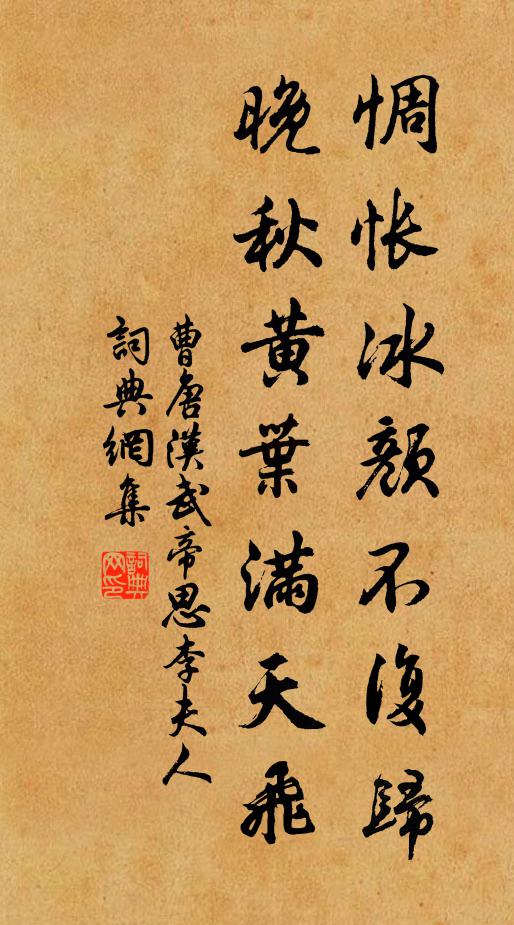 惆悵冰顏不復歸
晚秋黃葉滿天飛
曹唐漢武帝思李夫人
詞典網集
詞典網印